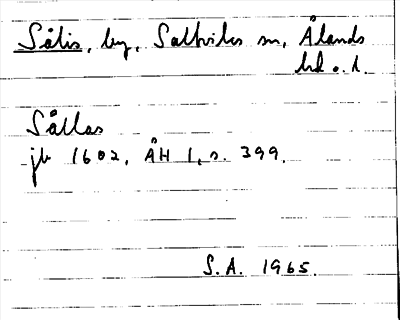 Sålis, by, Saltviks sn, Ålands
hd o. l.
Sållas
jb 1602, ÅH 1, s. 399.
S.A. 1965.